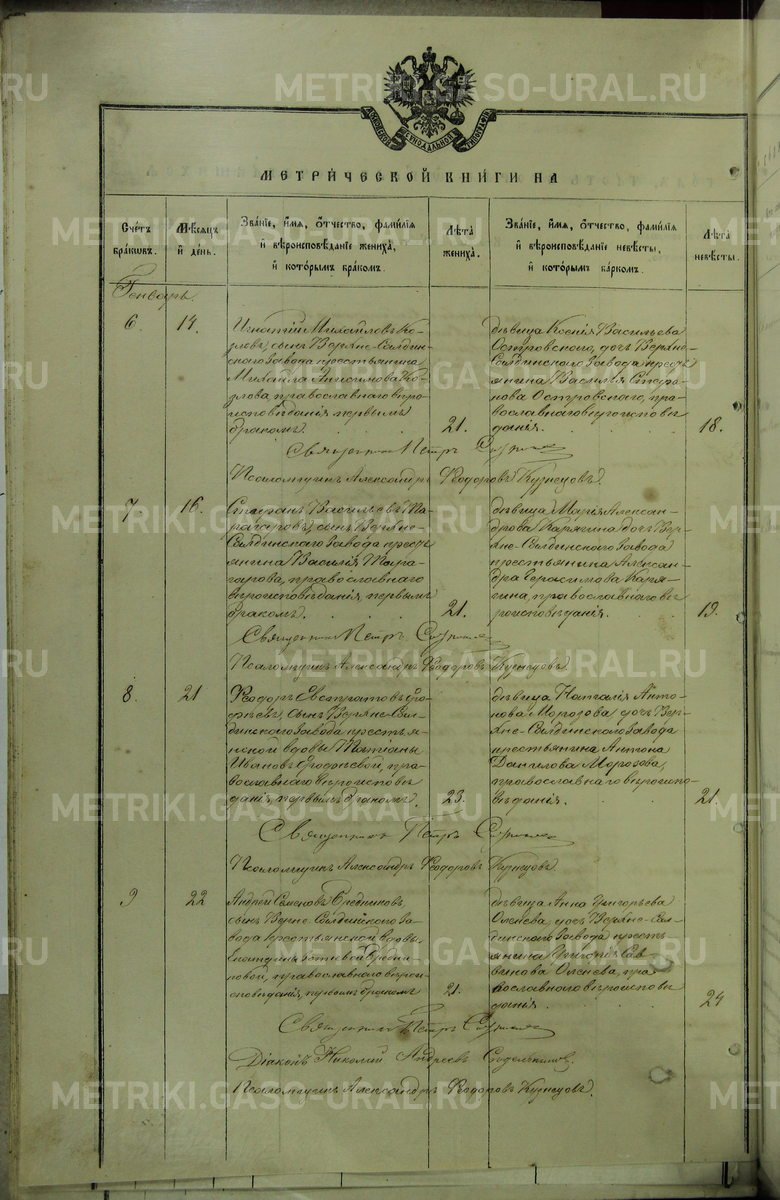 МЕТРИ́ЧЕСКОЙ КНИ́ГИ НА
Сче́тъ бра́ковъ.
Мѣ́сяцъ и҆ де́нь.
Зва́нїе, и҆́мя, ѻ҆́тчество, фами́лїя и҆ вѣроисповѣ́данїе жениха̀, и҆ кото́рымъ бра́комъ.
Лѣ́та жениха̀.
Зва́нїе, и҆́мя, ѻ҆́тчество, фами́лїя и҆ вѣроисповѣ́данїе невѣ́сты, и҆ кото́рымъ ба́ркомъ.
Лѣ́та невѣ́сты.
Генварь
6
14.
Игнатій Михайловъ Ко-
зловъ, сынъ Верхне-Салдин-
скаго завода крестьянина
Михаила Анисимова Ко-
злова, православнаго вѣро-
исповѣданія, первымъ
бракомъ.
21.
дѣвица Ксенія Васильева
Островскаго, дочь Верхне-
Салдинскаго завода кресть-
янина Василія Стефа-
нова Островскаго, пра-
вославнаго вѣроисповѣ-
данія.
18.
Священникъ Петръ
Псаломщикъ Александръ Ѳеодоровъ Кузнецовъ.
7
16.
Стефанъ Васильевъ
сынъ Верхне-
Салдинскаго завода кресть-
янина Василія
православнаго
вѣроисповѣданія, первымъ
бракомъ.
21.
дѣвица Марія Алексан-
дрова Карягина, дочь Вер-
хне-Салдинскаго завода
крестьянина Алексан-
дра Герасимова Каря-
гина, православнаго вѣ-
роисповѣданія.
19.
Священникъ Петръ
Псаломщикъ Александръ Ѳеодоровъ Кузнецовъ.
8.
21
Ѳеодоръ Евстратовъ Еро-
фѣевъ, сынъ Верхне-Сал-
динскаго завода крестья-
нской вдовы Татіаны
Ивановъ Ерофѣевой, пра-
вославнаго вѣроисповѣ-
данія, первымъ бракомъ.
23.
дѣвица Наталія Анто-
нова Морозова, дочь Вер-
хне-Салдинскаго завода
крестьянина Антона
Данилова Морозова,
православнаго вѣроиспо-
вѣданія.
21.
Священникъ Петръ
Псаломщикъ Александръ Ѳеодоровъ Кузнецовъ.
9
22
Андрей Семеновъ
сынъ Верхне-Салдинскаго за-
вода крестьянской вдовы
православнаго вѣрои-
сповѣданія, первымъ бракомъ
21.
дѣвица Анна Григорьева
Оленева, дочь Верхне-Сал-
динскаго завода кресть-
янина Григорія Сав-
винова Оленева, пра-
вославнаго вѣроисповѣ-
данія.
24
Священникъ Петръ
Діаконъ Николай Андреевъ
Псаломщикъ Александръ Ѳеодоровъ Кузнецовъ.
METRIKI.GASO-URAL.RU